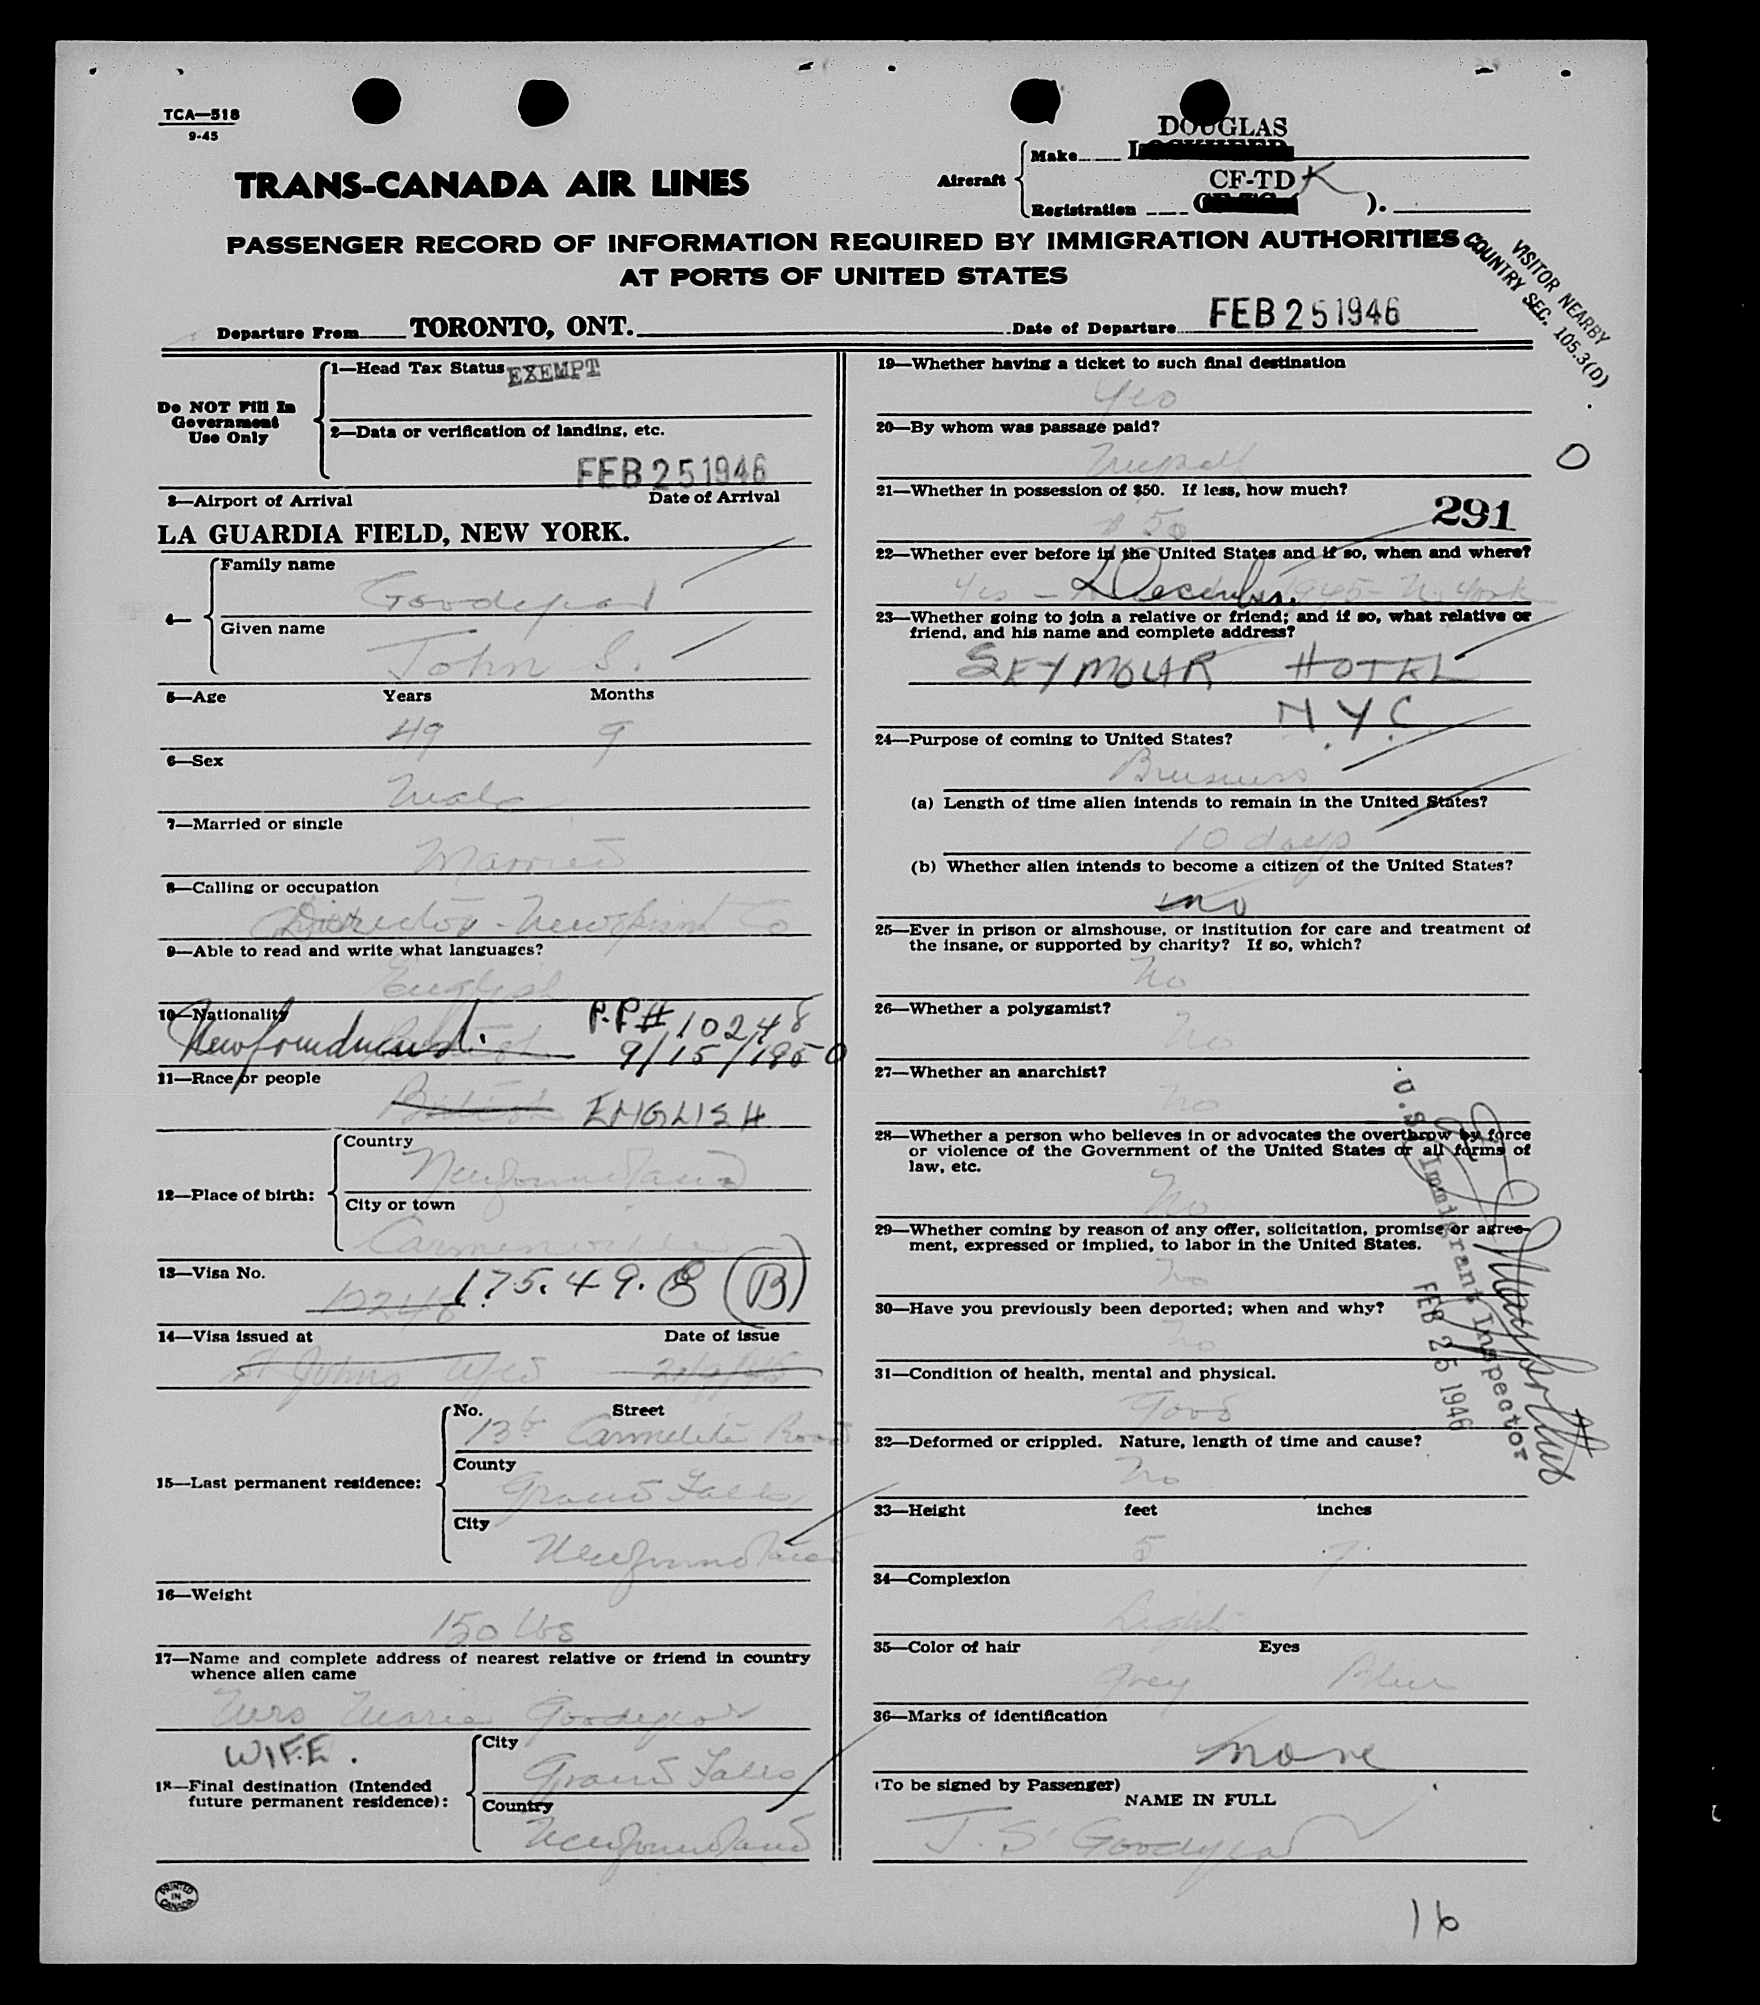 TCA—518
9-45
TRANS-CANADA AIR LINES
Aircraft
Make
DOUGLAS
Registration
CF-TDK
).
PASSENGER RECORD OF INFORMATION REQUIRED BY IMMIGRATION AUTHORITIES
AT PORTS OF UNITED STATES
VISITOR NEARBY
COUNTRY SEC. 105.3(D)
Departure From TORONTO, ONT. Date of Departure FEB 25 1946
Do NOT Fill In
Government
Use Only
1—Head Tax Status EXEMPT
2—Data or verification of landing, etc.
FEB 25 1946
3—Airport of Arrival Date of Arrival
LA GUARDIA FIELD, NEW YORK.
4—
Family name
Goodyear
Given name
John S.
5—Age Years Months
49 9
6—Sex
Male
7—Married or single
Married
8—Calling or occupation
Director - Newsprint Co
9—Able to read and write what languages?
English
10—Nationality
Newfoundland. P.P# 10248
9/15/1950
11—Race or people
British ENGLISH
12—Place of birth:
Country
Newfoundland
City or town
Carmenville
13—Visa No.
10248 175.49.8 (B)
14—Visa issued at Date of issue
St Johns Nfld
15—Last permanent residence:
No. Street
Carmelite Road
County
Grand Falls
City
Newfoundland
16—Weight
150 lbs
17—Name and complete address of nearest relative or friend in country
whence alien came
Mrs Marie Goodyear
WIFE.
18—Final destination (Intended
future permanent residence):
City
Grand Falls
Country
Newfoundland
PRINTED
IN
CANADA
19—Whether having a ticket to such final destination
Yes
20—By whom was passage paid?
Myself
21—Whether in possession of $50. If less, how much?
$50
291
22—Whether ever before in the United States and if so, when and where?
Yes - December, 1945 - N. York
23—Whether going to join a relative or friend; and if so, what relative or
friend, and his name and complete address?
SEYMOUR HOTEL
N.Y.C
24—Purpose of coming to United States?
Business
(a) Length of time alien intends to remain in the United States?
10 days
(b) Whether alien intends to become a citizen of the United States?
no
25—Ever in prison or almshouse, or institution for care and treatment of
the insane, or supported by charity? If so, which?
No
26—Whether a polygamist?
No
27—Whether an anarchist?
No
28—Whether a person who believes in or advocates the overthrow by force
or violence of the Government of the United States or all forms of
law, etc.
No
29—Whether coming by reason of any offer, solicitation, promise or agree-
ment, expressed or implied, to labor in the United States.
No
30—Have you previously been deported; when and why?
No
31—Condition of health, mental and physical.
Good
32—Deformed or crippled. Nature, length of time and cause?
No
33—Height feet inches
5 7
34—Complexion
Light
35—Color of hair Eyes
Grey Blue
36—Marks of identification
none
(To be signed by Passenger)
NAME IN FULL
J. S. Goodyear
U.S. Immigrant Inspector
FEB 25 1946
16